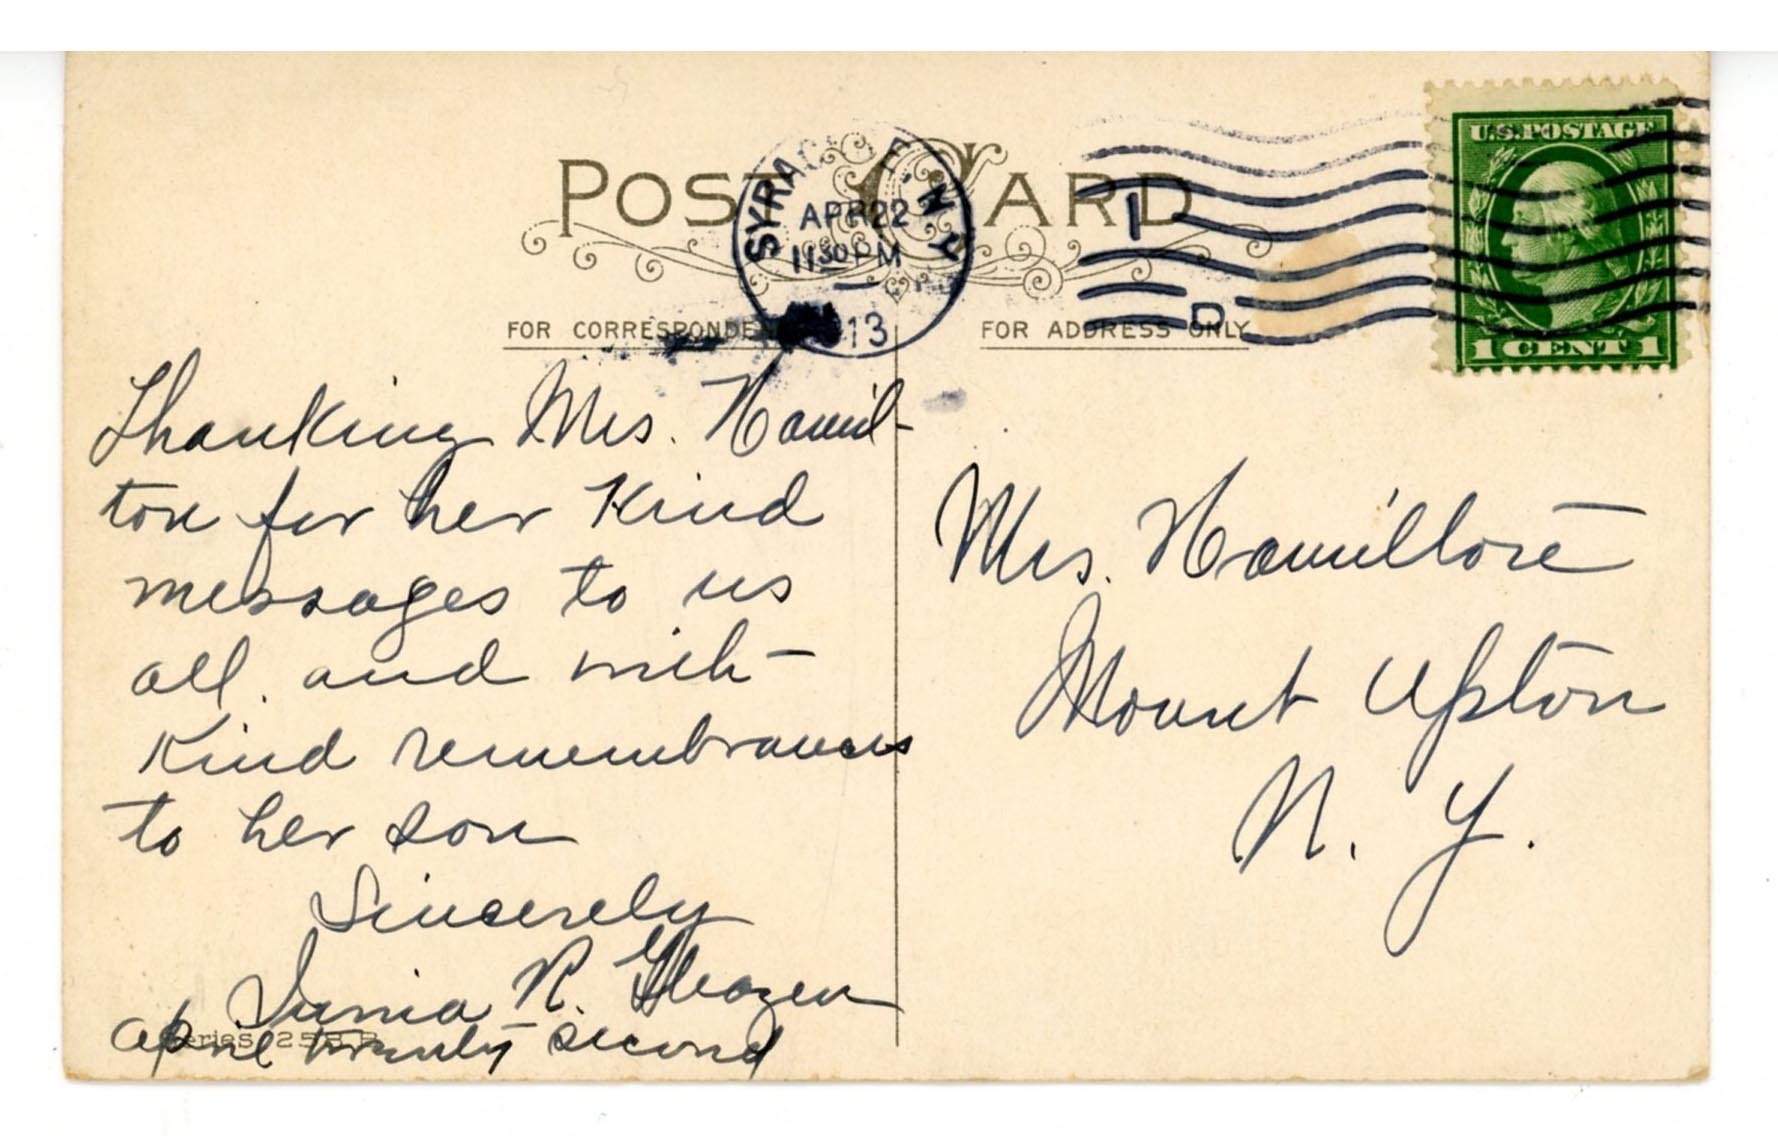 POST CARD
SYRACUSE, N.Y.
APR 22
11 30 PM
13
1
D
U.S. POSTAGE
1 CENT 1
FOR CORRESPONDENCE
FOR ADDRESS ONLY
Thanking Mrs. Hamil-
ton for her Kind
messages to us
all. and with
Kind remembrances
to her son
Sincerely
R. Gleazen
April twenty second
Series
Mrs. Hamilton
Mount Upton
N. Y.